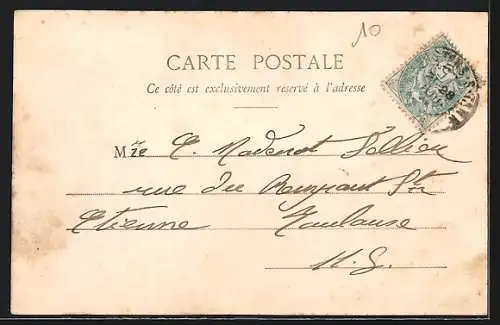 10
CARTE POSTALE
Ce côté est exclusivement réservé à l'adresse
Mlle C.
rue du Rempart St
Etienne Toulouse
H. G.